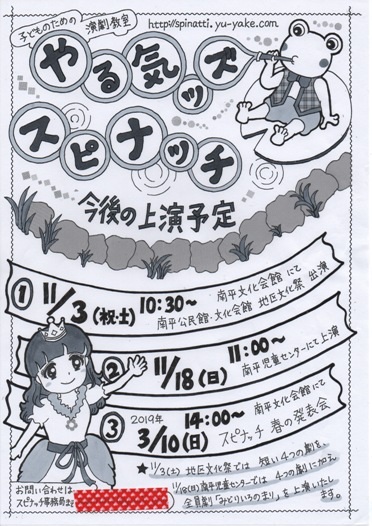 子どものための
演劇教室
http://spinatti.yu-yake.com
やる気ッズ
スピナッチ
今後の上演予定
① 11/3(祝・土) 10:30～ 南平文化会館にて
南平公民館・文化会館 地区文化祭 出演
② 11/18(日) 11:00～
南平児童センターにて上演
③ 2019年 3/10(日) 14:00～ 南平文化会館にて
スピナッチ 春の発表会
★11/3(土)地区文化祭では 短い4つの劇を、
11/18(日)南平児童センターでは 4つの劇に加え
全員劇「みどりいろのまり」を上演いたします。
お問い合わせは
スピナッチ事務局まで